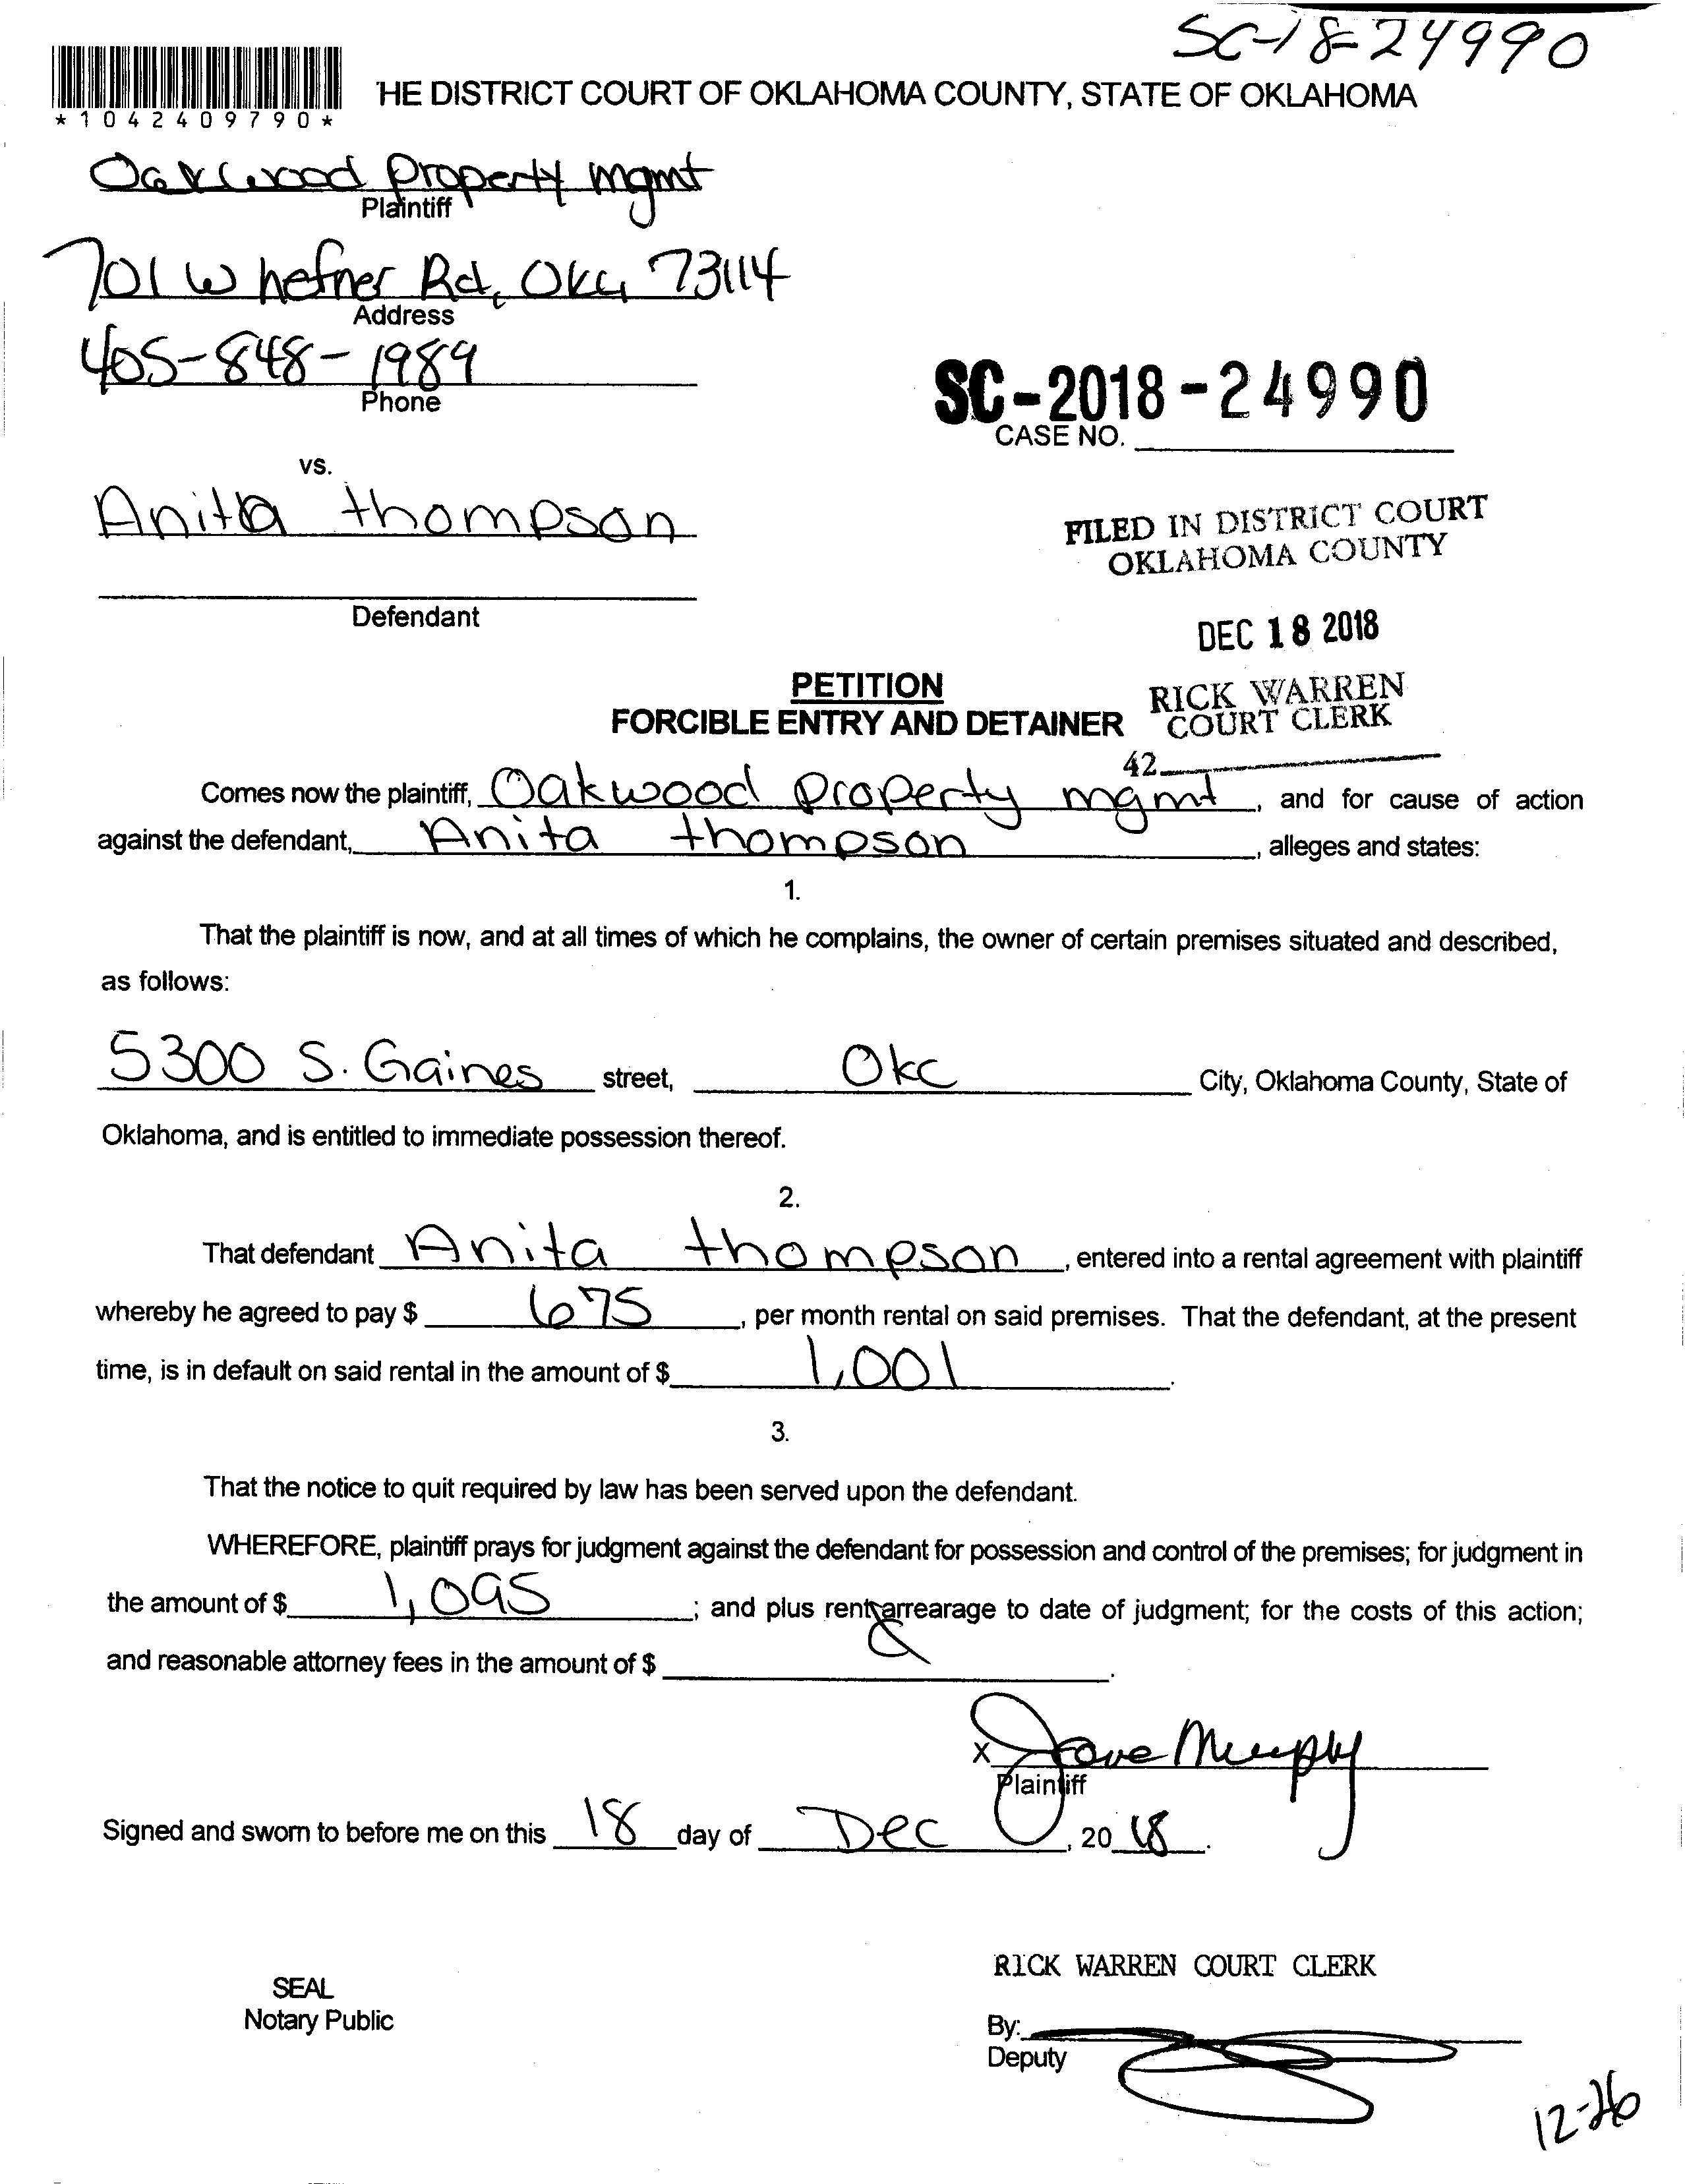 SC-18-24990
*1042409790*
HE DISTRICT COURT OF OKLAHOMA COUNTY, STATE OF OKLAHOMA
Oakwood Property mgmt
Plaintiff
701 W hefner Rd, OKC, 73114
Address
405-848-1989
Phone
SC-2018-24990
CASE NO.
vs.
Anita thompson
FILED IN DISTRICT COURT
OKLAHOMA COUNTY
Defendant
DEC 18 2018
PETITION
RICK WARREN
FORCIBLE ENTRY AND DETAINER
COURT CLERK
42
Comes now the plaintiff, Oakwood Property mgmt, and for cause of action
against the defendant, Anita thompson, alleges and states:
1.
That the plaintiff is now, and at all times of which he complains, the owner of certain premises situated and described,
as follows:
5300 S. Gaines street, Okc City, Oklahoma County, State of
Oklahoma, and is entitled to immediate possession thereof.
2.
That defendant Anita thompson, entered into a rental agreement with plaintiff
whereby he agreed to pay $ 675, per month rental on said premises. That the defendant, at the present
time, is in default on said rental in the amount of $ 1,001.
3.
That the notice to quit required by law has been served upon the defendant.
WHEREFORE, plaintiff prays for judgment against the defendant for possession and control of the premises; for judgment in
the amount of $ 1,095; and plus rent arrearage to date of judgment; for the costs of this action;
and reasonable attorney fees in the amount of $ .
X Jane Murphy
Plaintiff
Signed and sworn to before me on this 18 day of Dec, 20 18.
RICK WARREN COURT CLERK
SEAL
Notary Public
By:
Deputy
12-26